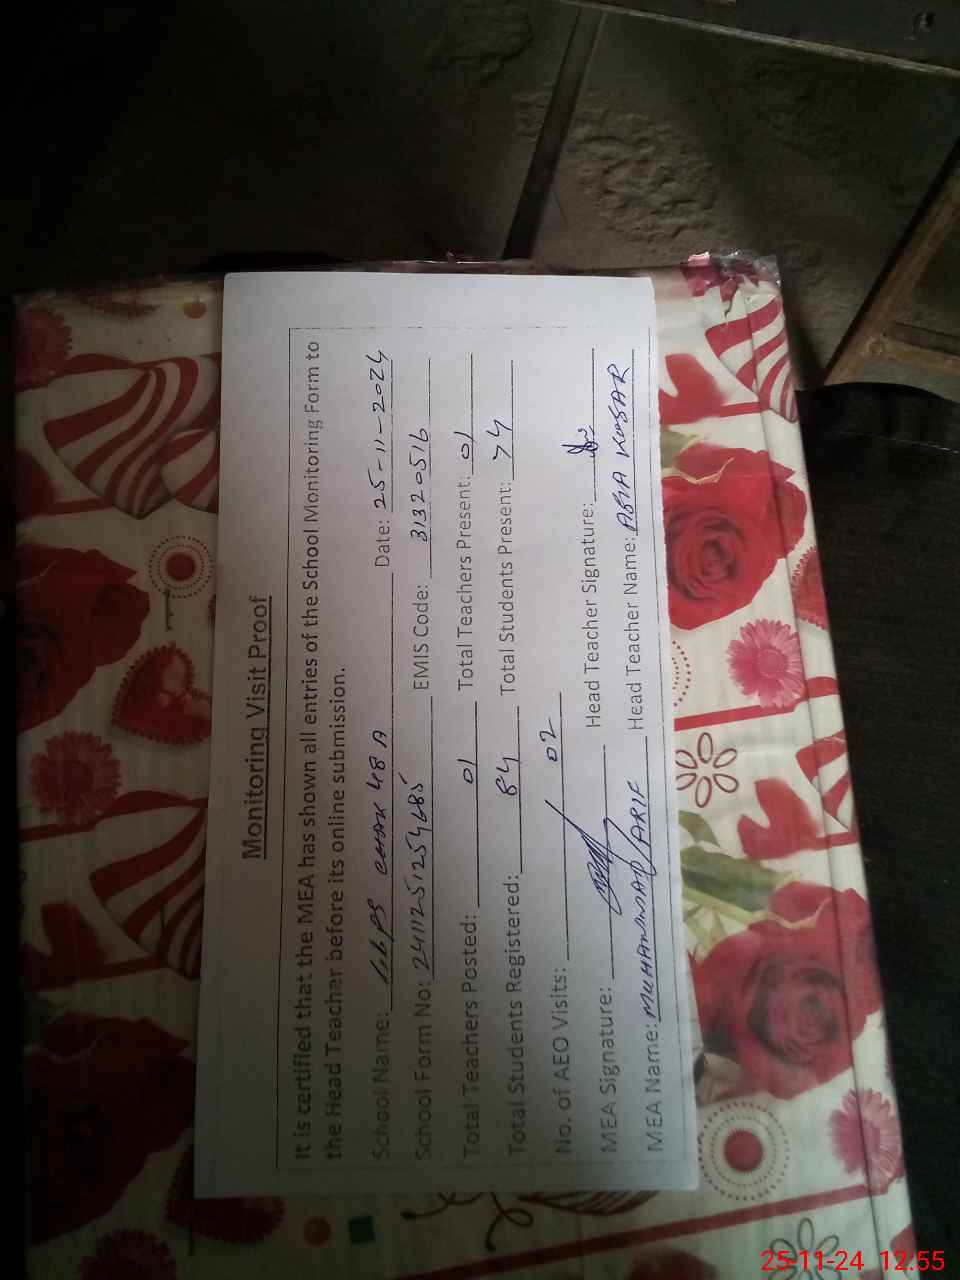 Monitoring Visit Proof
It is certified that the MEA has shown all entries of the School Monitoring Form to
the Head Teacher before its online submission.
School Name: CHAK 48 A Date: 25-11-2024
School Form No: 2411251254685 EMIS Code: 31320516
Total Teachers Posted: 01 Total Teachers Present: 01
Total Students Registered: 84 Total Students Present: 74
No. of AEO Visits: 02
MEA Signature: Head Teacher Signature:
MEA Name: MUHAMMAD ARIF Head Teacher Name: ASIA KOSAR
25-11-24 12:55